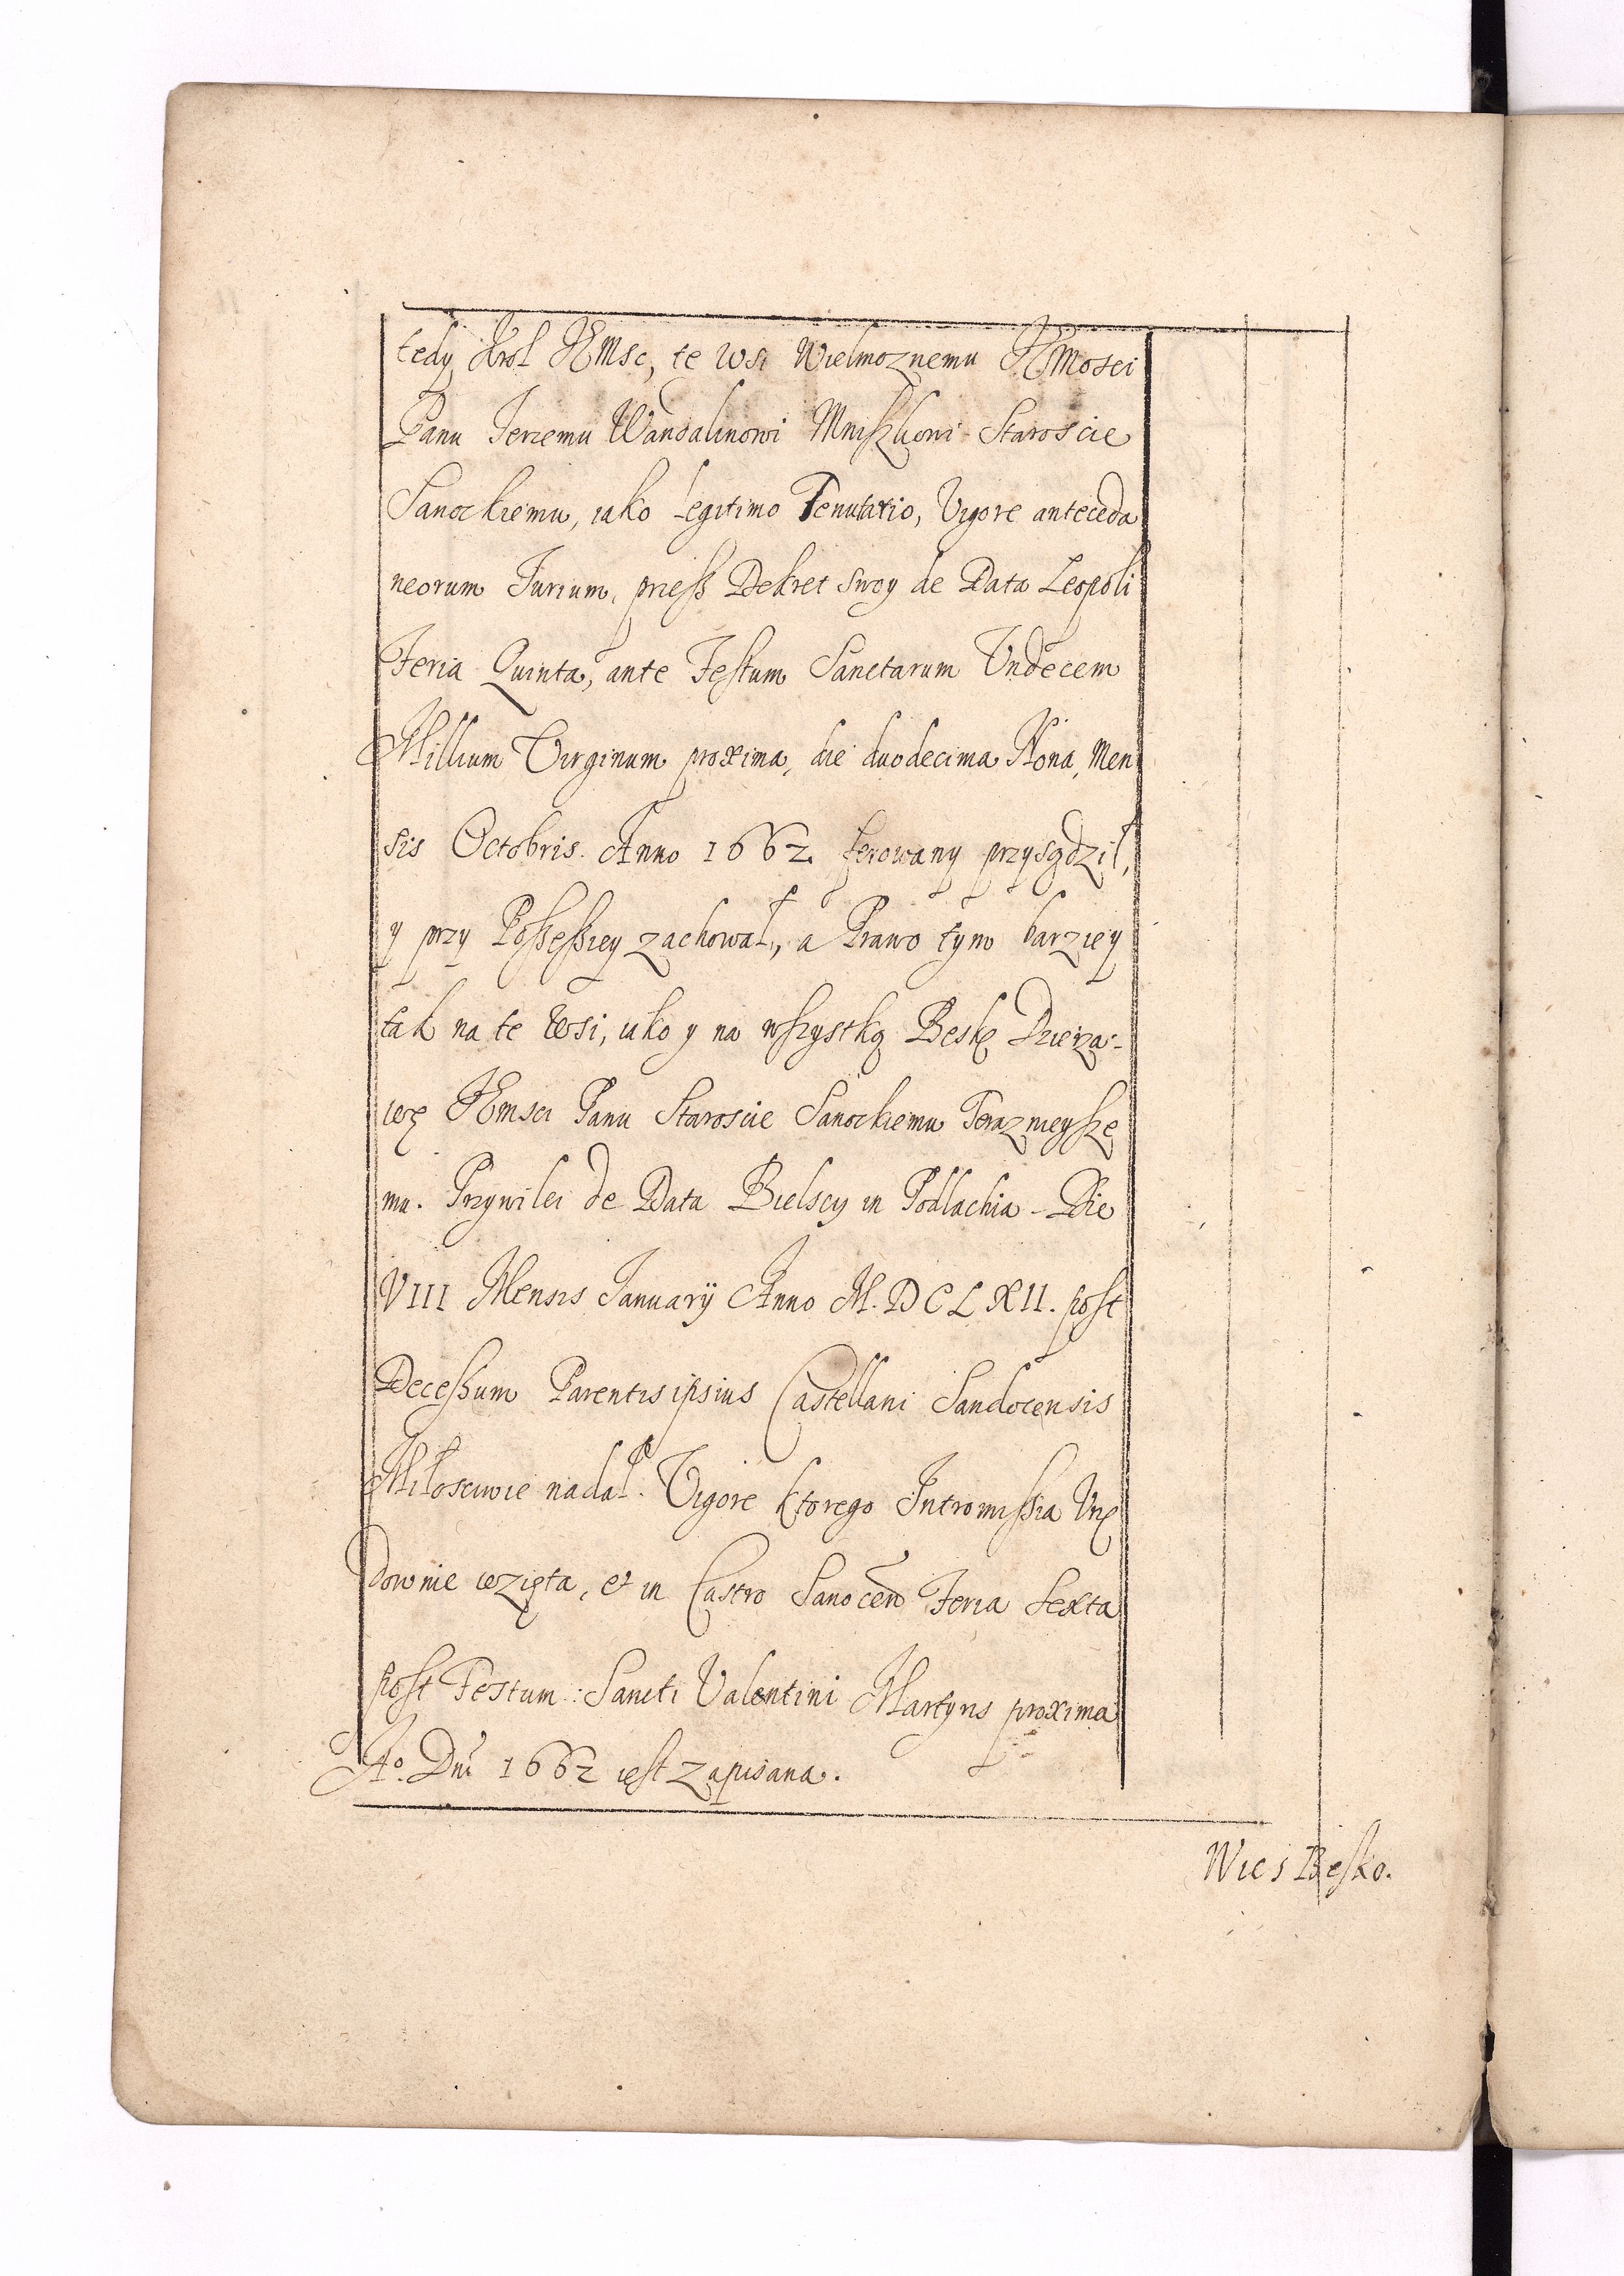 tedy Krol JEmsc, te wsi Wielmoznemu JEMosci
Panu Jerzemu Wandalinowi Mniszkowi Staroscie
Sanockiemu, iako Legitimo Tenutario, Vigore anteceda
neorum Jurium, przesz Dekret swoy de Data Leopoli
Feria Quinta, ante Festum Sanctarum Undecem
Millium Virginum proxima, die duodecima Nona, Men
sis Octobris. Anno 1662. ferowany przysądził,
y przy Possessiey zachował, a Prawo tym barziey
tak na te wsi, iako y na wszystkę Beskę Dzierza-
wę JEmsci Panu Staroscie Sanockiemu Teraznieysze
mu. Przywilei de Data Bielscy in Podlachia Die
VIII Mensis Januarij Anno M.DCLXII. post
Decessum Parentis ipsius Castellani Sandocensis
Miłosciwie nadał. Vigore ktorego Intromissia Vrzę
downie wzięta, et in Castro Sanocen Feria Sexta
post Festum Sancti Valentini Martyris proxima
Ao. Dni 1662 iest zapisana.
Wies Besko.